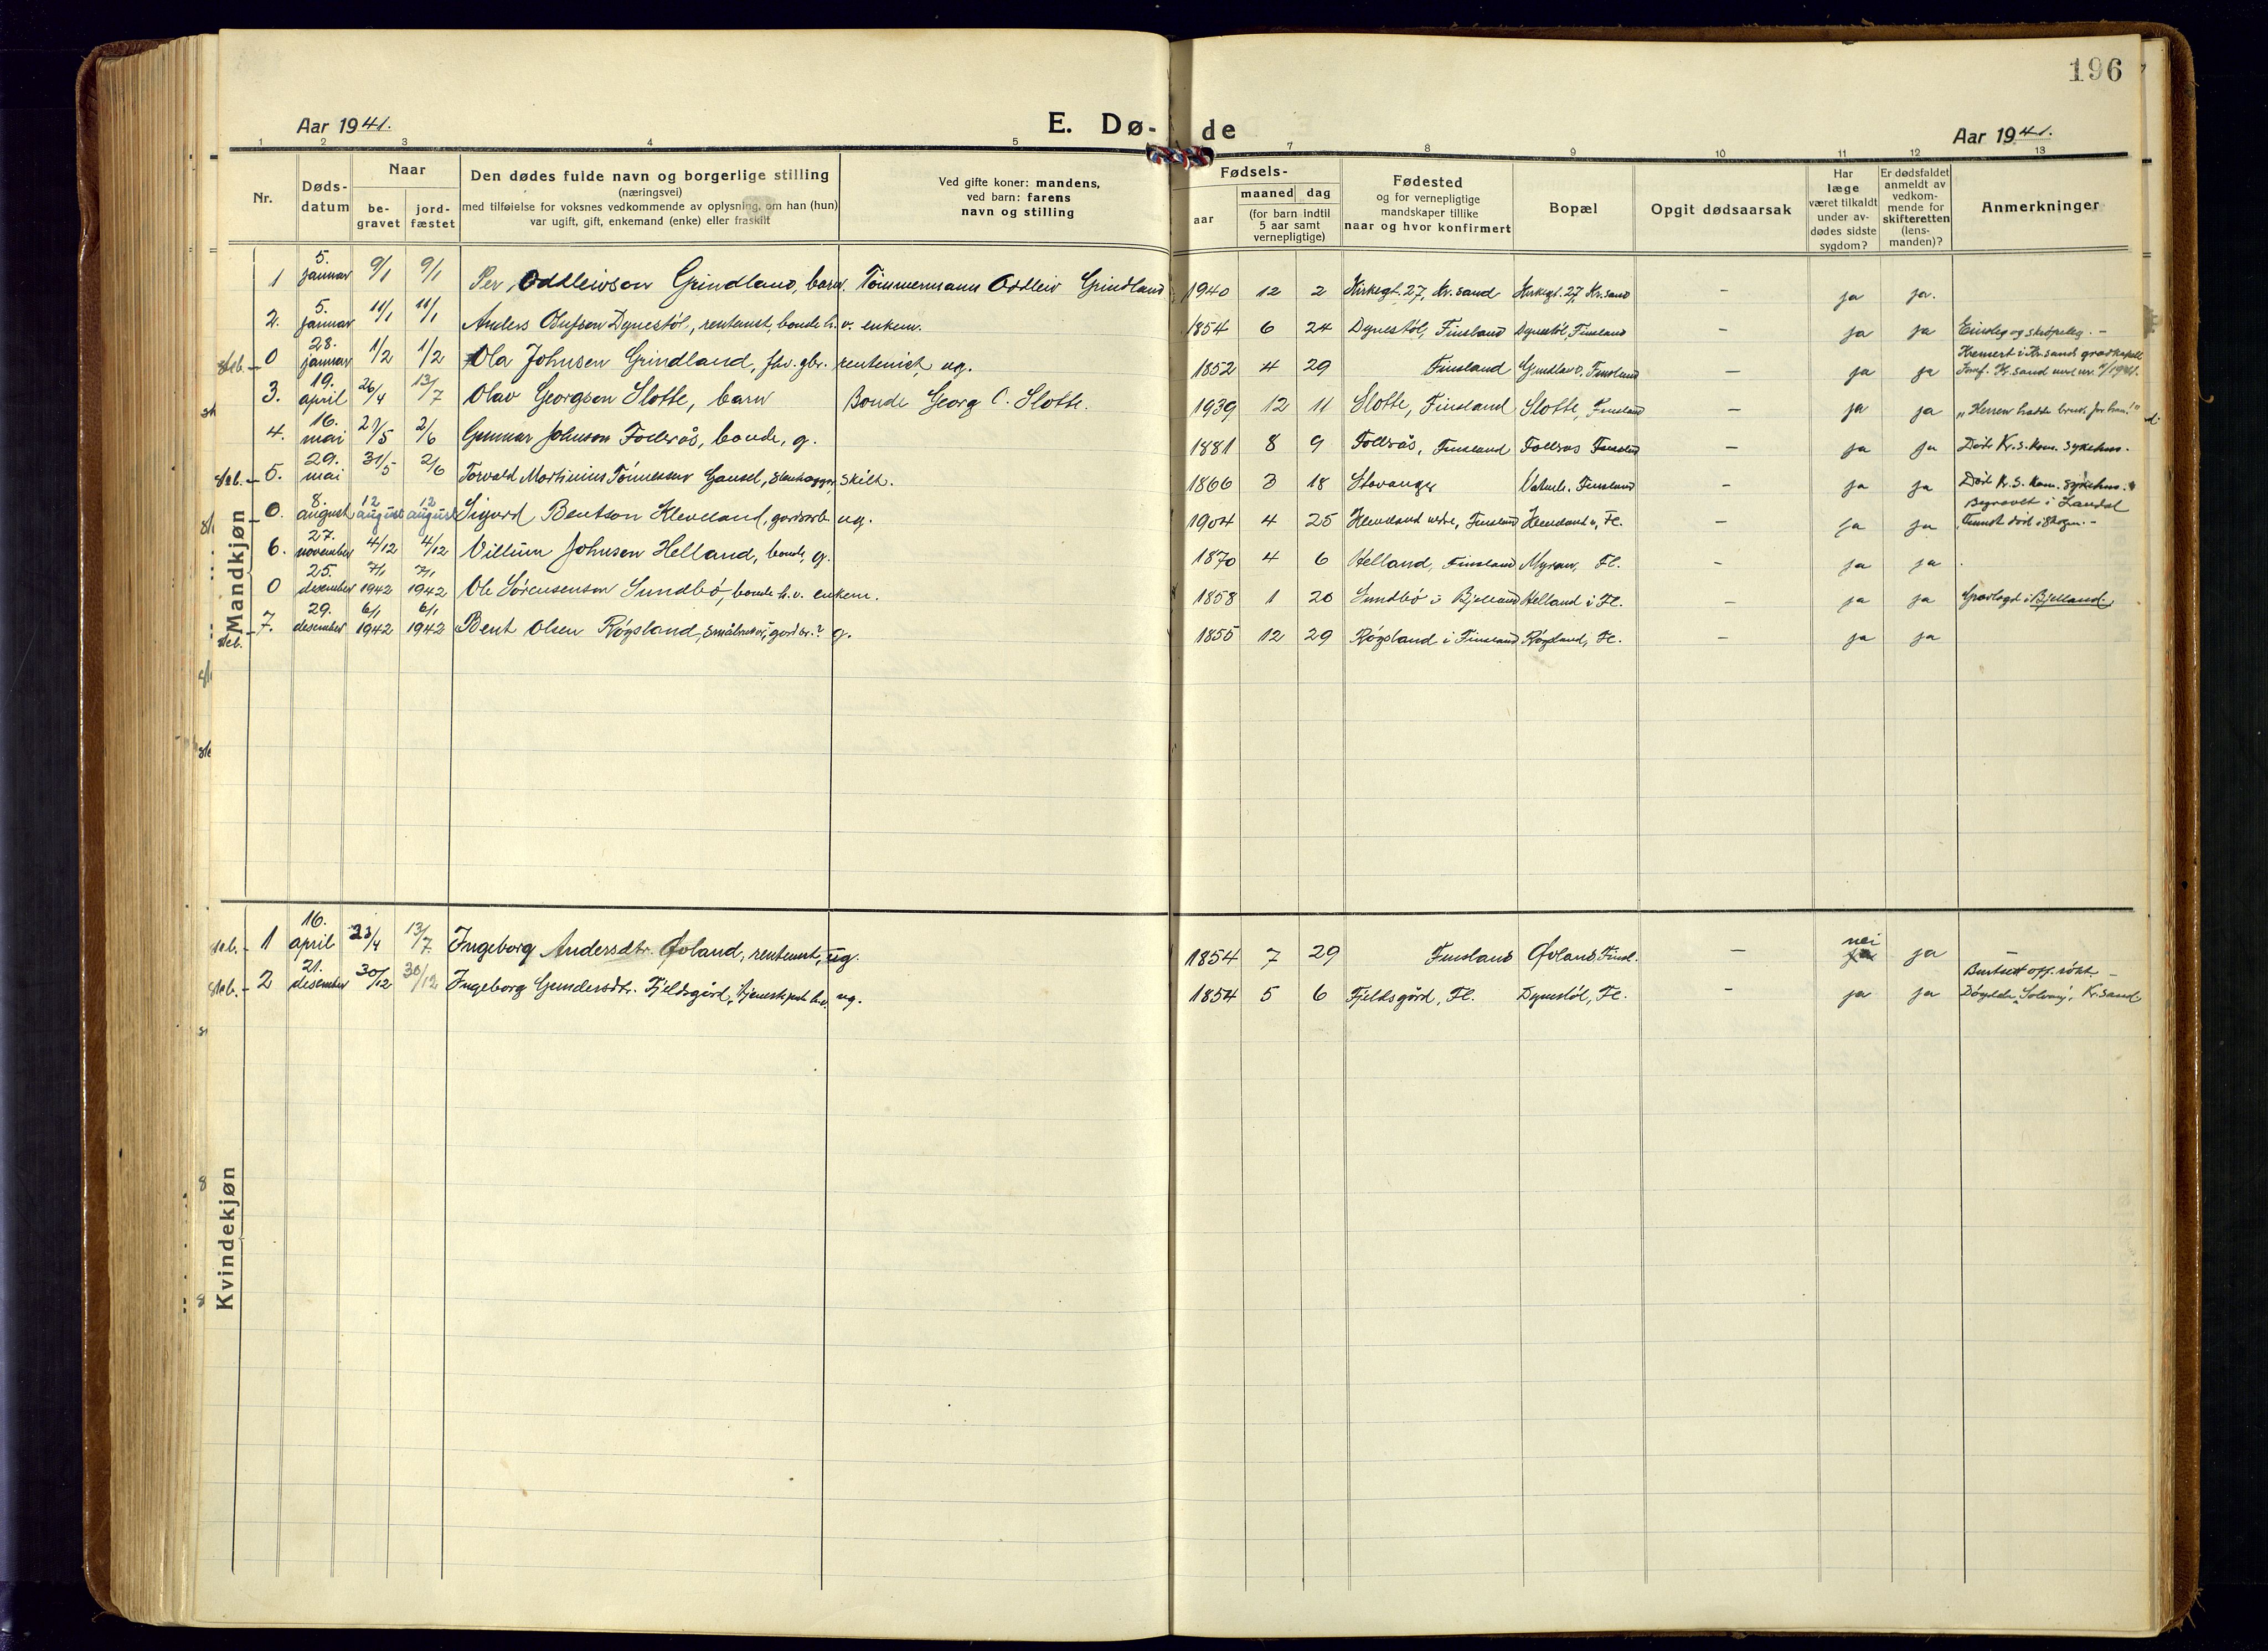 196
Aar 1941.
E. Dø-
de
Aar 1941.
1 2 3 4 5 7 8 9 10 11 12 13
Nr.
Døds-
datum
Naar
be-
gravet
jord-
fæstet
Den dødes fulde navn og borgerlige stilling
(næringsvei)
med tilføielse for voksnes vedkommende av oplysning, om han (hun)
var ugift, gift, enkemand (enke) eller fraskilt
Ved gifte koner: mandens,
ved barn: farens
navn og stilling
Fødsels-
aar
maaned dag
(for barn indtil
5 aar samt
vernepligtige)
Fødested
og for vernepligtige
mandskaper tillike
naar og hvor konfirmert
Bopæl
Opgit dødsaarsak
Har
læge
været tilkaldt
under av-
dødes sidste
sygdom?
Er dødsfaldet
anmeldt av
vedkom-
mende for
skifteretten
(lens-
manden)?
Anmerkninger
Mandkjøn
1 5. januar 9/1 9/1 Per Oddleivson Grindland, barn. Tømmermann Oddleiv Grindland 1940 12 2 Kirkegt. 27, Kr.sand Kirkegt. 27 Kr.sand - ja ja.
2. 5. januar 11/1 11/1 Anders Olufson Dynestøl, rentenist, bonde h.v. enkem. 1854 6 24 Dynestøl, Finsland Dynestøl, Finsland - ja ja Einsleg og skrøpeleg. -
0 28. januar 1/2 1/2 Ola Johnsen Grindland, fhv. gbr. rentenist ug. 1852 4 29 Finsland Grindland, Finsland - ja ja Kremert i Kr.sands gravkapell
3. 19. april 26/4 13/7 Olav Georgson Slotte, barn Bonde Georg O. Slotte. 1939 12 11 Slotte, Finsland Slotte, Finsland - ja ja "Herren hadde bruk for ham!"
4. 16. mai 27/5 2/6 Gunnar Johnson Follerås, bonde, g. 1881 8 9 Follerås, Finsland Follerås Finsland - ja ja Død Kr.S. kom. sykehus.
5. 29. mai 31/5 2/6 Torvald Martinius Tønnessen Gausel, stenhogger, skilt. 1866 3 18 Stavanger Finsland - ja ja Død Kr.S. kom. sykehus.
0. 8. august 12 august 12 august Sigurd Bentson Kleveland, gardsarb. ug. 1904 4 25 Kleveland nedre, Finsland Kleveland n, Fl. - ja ja Begravet i Laudal Funnet død i skogen. -
6. 27. november 4/12 4/12 Villum Johnsen Helland, bonde, g. 1870 4 6 Helland, Finsland Myran, Fl. - ja ja
0 25. desember 7/1 1942 7/1 1942 Ole Sørensenson Sundbø, bonde h.v. enkem. 1858 1 20 Sundbø i Bjelland Helland i Fl. - ja ja Gravlagd i Bjelland.
7. 29. desember 6/1 1942 6/1 1942 Bent Olsen Røysland, småbruker, gardbr.? g. 1855 12 29 Røysland i Finsland Røysland, Fl. - ja ja
Kvindekjøn
1 16. april 23/4 13/7 Ingeborg Andersdtr. Øvland, rentenist, ug. 1854 7 29 Finsland Øvland, Finsl. - nei ja -
2 21. desember 30/12 30/12 Ingeborg Gundersdtr. Fjeldsgård, tjenestejente h.v. ug. 1854 5 6 Fjeldsgård, Fl. Dynestøl, Fl. - ja ja Døydde "Solvang", Kr.sand.